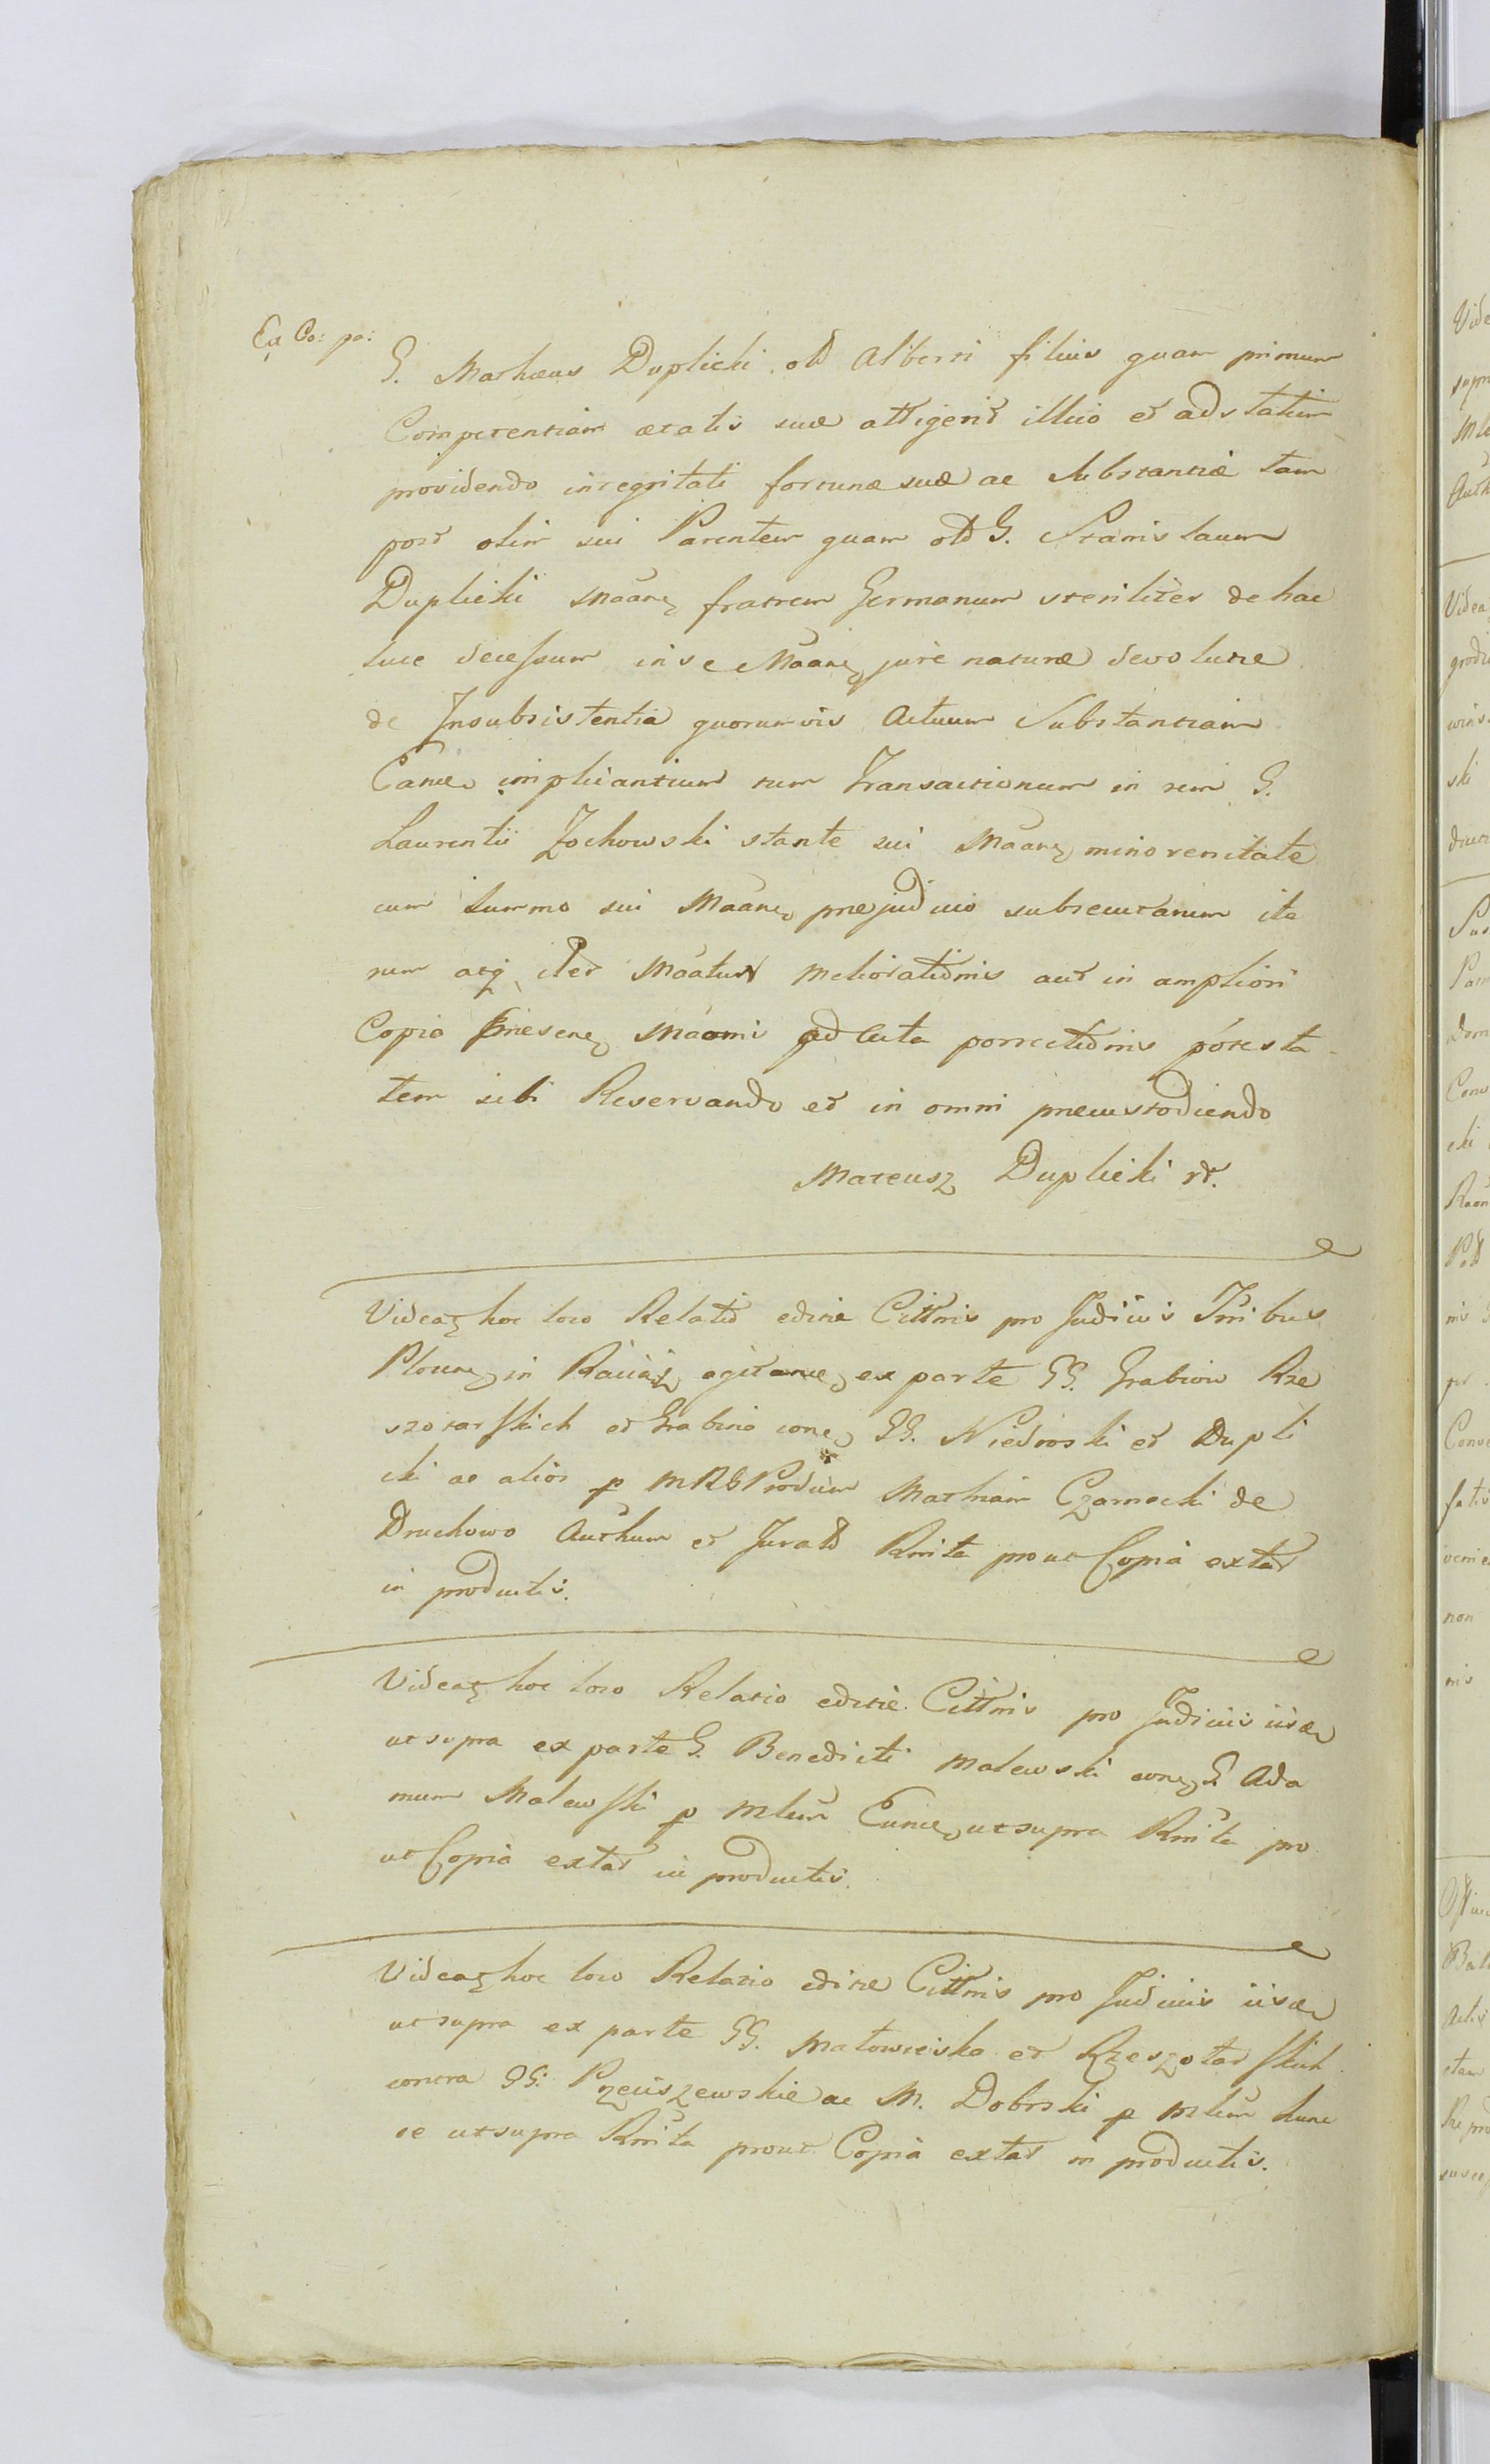 Ex Co: po:
G. Matheus Duplicki olt Alberti filius quam primum
Competentiam ætatis suæ attigerit illico et adstatim
providendo integritati fortunæ suæ ac Substantiæ tam
post olim sui Parentem quam olt G. Stanislaum
Duplicki Maane fratrem Germanum steriliter de hac
luce decessum in se Maane jure naturæ devolutæ
de Insubsistentia quorumvis Actuum Substantiam
Eame implicantium tum Transactionum in rem G.
Laurentii Żochowski stante sui Maane minorenitate
cum summo sui Maane præjudicio subsecutarum ite
rum atq iter Maatur meliorationis aut in ampliori
Copia præsene Maomi ad Acta porrectionis potesta
tem sibi Reservando et in omni præcustodiendo
Mateusz Duplicki
Videat hoc loco Relatio editæ Cittnis pro Judiciis Trnibus
Plocen in agitane ex parte GG. Grabiow Rze
szotarskich et Grabino cone GG. Niedroski et Dupli
cki ac alios p Produm Mathiam Czarnocki de
Druchowo Authum et Jurat Rnita prout Copia extat
in productis.
Videat hoc loco Relatio editæ Cittnis pro Judiciis iisde
ut supra ex parte G. Benedicti Malewski cone G Ada
mum Malewski p Mlum Eunde ut supra Rnita pro
ut Copia extat in productis.
Videat hoc loco Relatio editæ Cittnis pro Judiciis iisde
ut supra ex parte GG. Matowieska et Rzeszotarskich
contra GG: Pzeciszewskie ac M. Dobrski p Mlum hunc
ce ut supra Rnita prout Copia extat in productis.